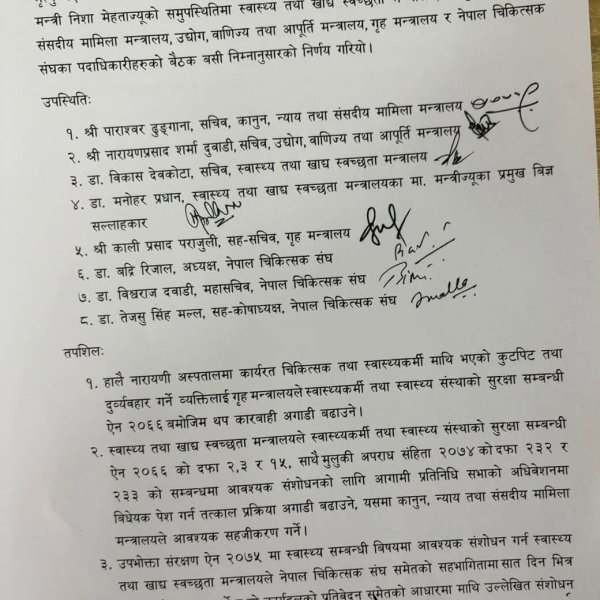 मन्त्री निशा मेहताज्यूको समुपस्थितिमा स्वास्थ्य तथा खाद्य स्वच्छता
संसदीय मामिला मन्त्रालय, उद्योग, वाणिज्य तथा आपूर्ति मन्त्रालय, गृह मन्त्रालय र नेपाल चिकित्सक
संघका पदाधिकारीहरुको बैठक बसी निम्नानुसारको निर्णय गरियो।
उपस्थितिः
१. श्री पाराश्वर ढुङ्गाना, सचिव, कानुन, न्याय तथा संसदीय मामिला मन्त्रालय
२. श्री नारायणप्रसाद शर्मा दुवाडी, सचिव, उद्योग, वाणिज्य तथा आपूर्ति मन्त्रालय
३. डा. विकास देवकोटा, सचिव, स्वास्थ्य तथा खाद्य स्वच्छता मन्त्रालय
४. डा. मनोहर प्रधान, स्वास्थ्य तथा खाद्य स्वच्छता मन्त्रालयका मा. मन्त्रीज्यूका प्रमुख विज्ञ
सल्लाहकार
५. श्री काली प्रसाद पराजुली, सह-सचिव, गृह मन्त्रालय
६. डा. बद्रि रिजाल, अध्यक्ष, नेपाल चिकित्सक संघ
७. डा. विश्वराज दवाडी, महासचिव, नेपाल चिकित्सक संघ
८. डा. तेजसु सिंह मल्ल, सह-कोषाध्यक्ष, नेपाल चिकित्सक संघ
तपशिलः
१. हालै नारायणी अस्पतालमा कार्यरत चिकित्सक तथा स्वास्थ्यकर्मी माथि भएको कुटपिट तथा
दुर्व्यवहार गर्ने व्यक्तिलाई गृह मन्त्रालयले स्वास्थ्यकर्मी तथा स्वास्थ्य संस्थाको सुरक्षा सम्बन्धी
ऐन २०६६ बमोजिम थप कारबाही अगाडी बढाउने।
२. स्वास्थ्य तथा खाद्य स्वच्छता मन्त्रालयले स्वास्थ्यकर्मी तथा स्वास्थ्य संस्थाको सुरक्षा सम्बन्धी
ऐन २०६६ को दफा २,३ र १५, साथै मुलुकी अपराध संहिता २०७४ को दफा २३२ र
२३३ को सम्बन्धमा आवश्यक संशोधनको लागि आगामी प्रतिनिधि सभाको अधिवेशनमा
विधेयक पेश गर्न तत्काल प्रक्रिया अगाडी बढाउने, यसमा कानुन, न्याय तथा संसदीय मामिला
मन्त्रालयले आवश्यक सहजीकरण गर्ने।
३. उपभोक्ता संरक्षण ऐन २०७५ मा स्वास्थ्य सम्बन्धी बिषयमा आवश्यक संशोधन गर्न स्वास्थ्य
तथा खाद्य स्वच्छता मन्त्रालयले नेपाल चिकित्सक संघ समेतको सहभागितामा सात दिन भित्र
प्रतिवेदन समेतको आधारमा माथि उल्लेखित संशोधन